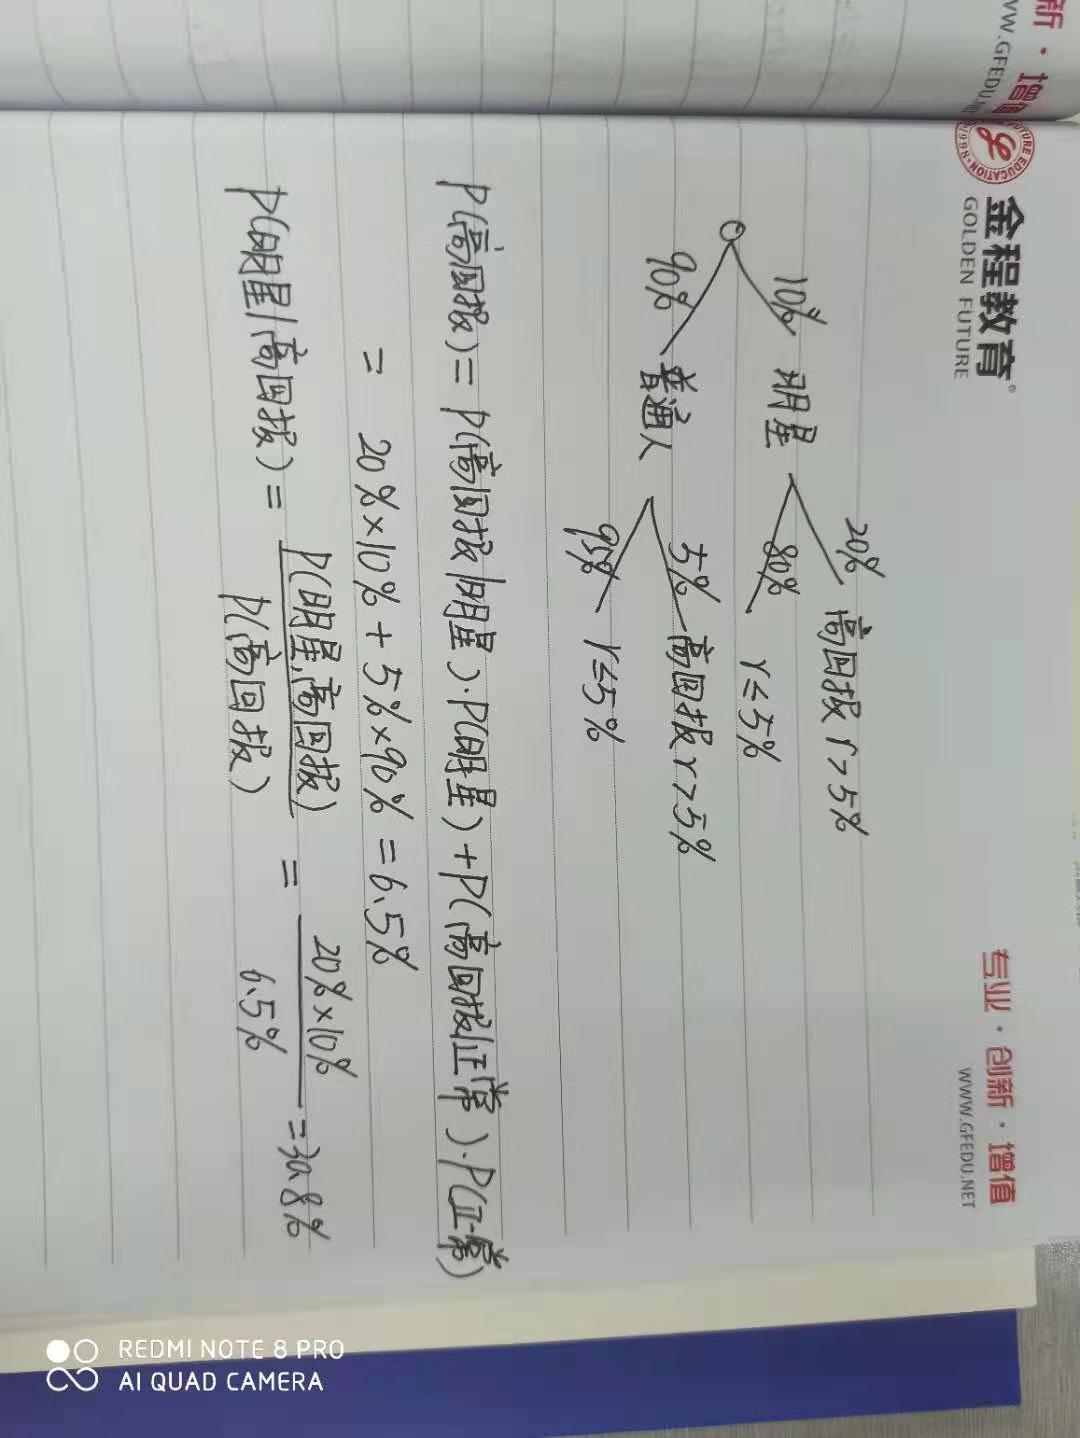 新·增值
WWW.GFEDU.NET
金程教育®
GOLDEN FUTURE
专业·创新·增值
WWW.GFEDU.NET
20% 高回报 r>5%
10% 明星
80% r≤5%
90% 普通人
5% 高回报 r>5%
95% r≤5%
P(高回报)=P(高回报|明星)·P(明星)+P(高回报|正常)·P(正常)
= 20%×10% + 5%×90% = 6.5%
P(明星|高回报) = P(明星,高回报) / P(高回报) = 20%×10% / 6.5% = 30.8%
REDMI NOTE 8 PRO
AI QUAD CAMERA